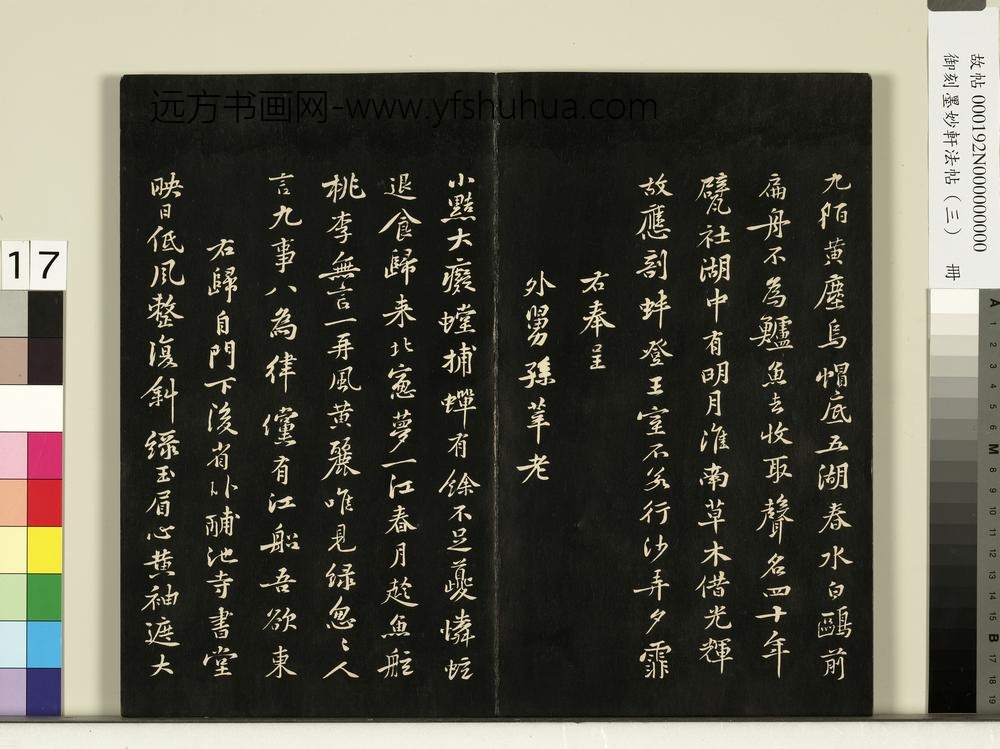 九陌黃塵烏帽底五湖春水白鷗前
扁舟不為鱸魚去收取聲名四十年
甓社湖中有明月淮南草木借光輝
故應剖蚌登王室不若行沙弄夕霏
右奉呈
外舅孫莘老
小黠大癡螳捕蟬有餘不足夔憐蚿
退食歸來北窻夢一江春月趁魚舡
桃李無言一再風黃麗唯見綠怱〻人
言九事八為律儻有江船吾欲東
右歸自門下後省臥酺池寺書堂
映日低風整復斜綠玉眉心黃袖遮大
远方书画网-www.yfshuhua.com
故帖 000192N000000000
御刻墨妙軒法帖（三） 冊
17
A 1 2 3 4 5 6 M 8 9 10 11 12 13 14 15 B 17 18 19